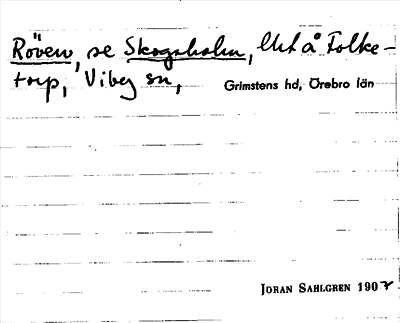 Röven, se Skogaholm, Utå Folke-
torp, Viby sn, Grimstens hd, Örebro län
JÖRAN SAHLGREN 1907